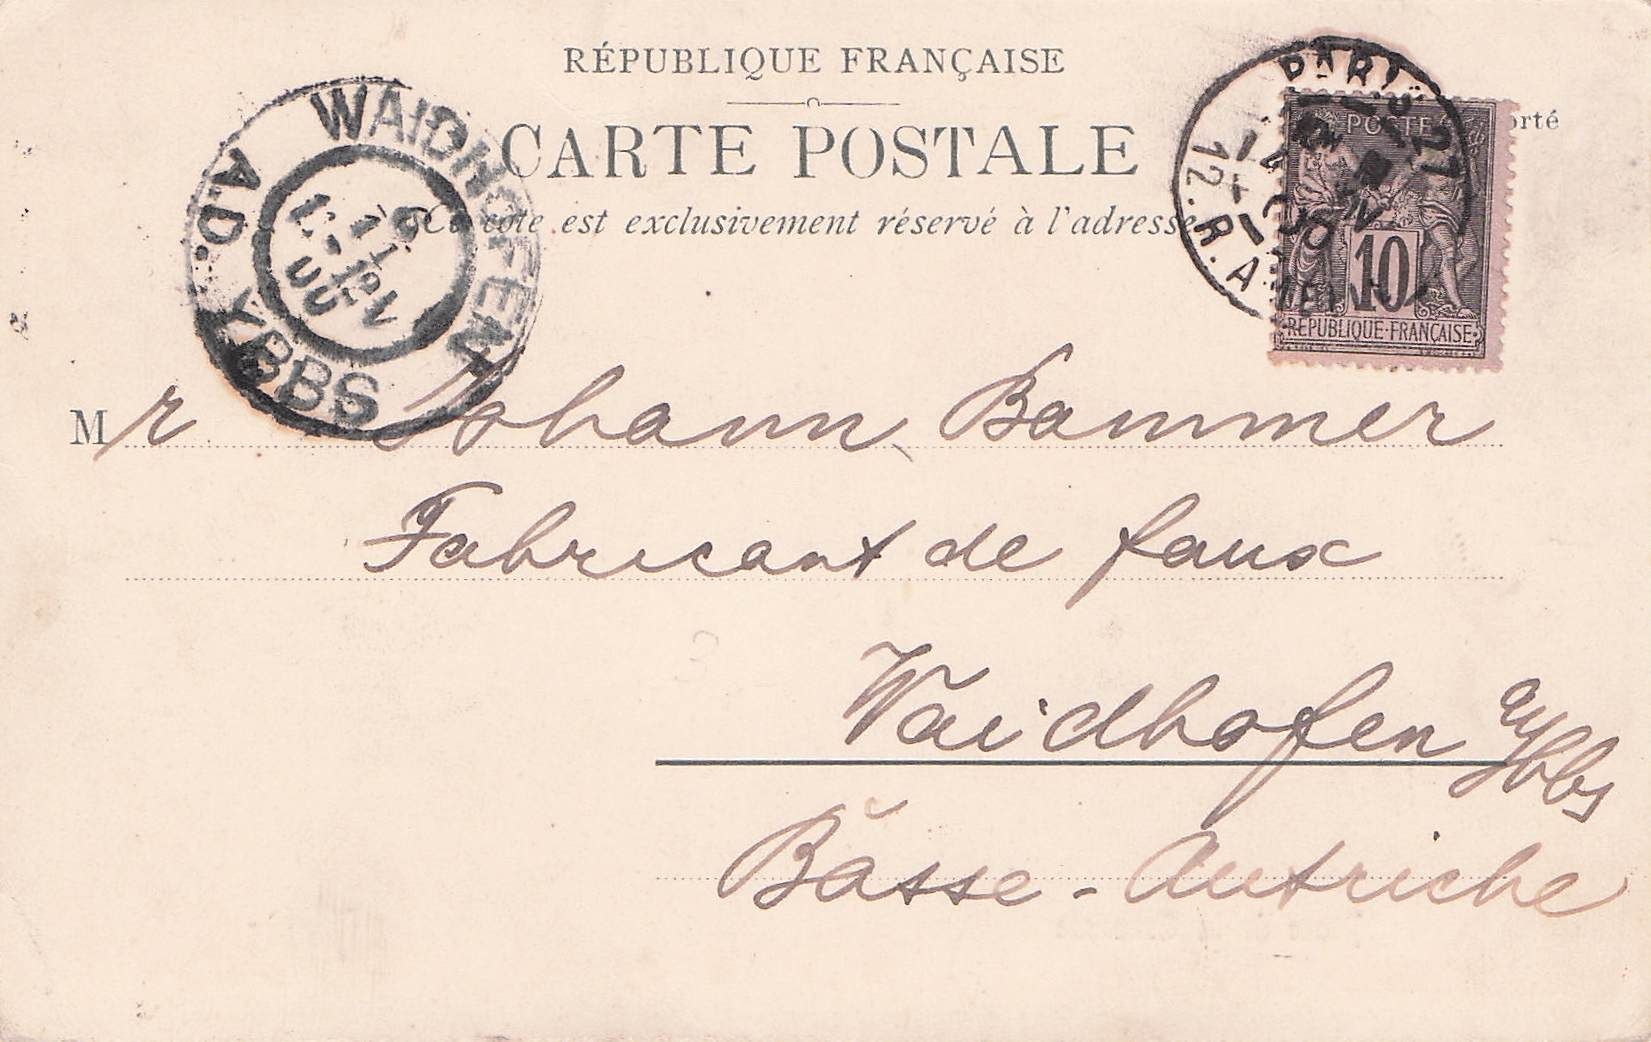 RÉPUBLIQUE FRANÇAISE
CARTE POSTALE
Ce côté est exclusivement réservé à l'adresse
orté
WAIDHOFEN
A.D. YBBS
PARIS 27
12. R.
POSTE
10
REPUBLIQUE·FRANÇAISE
Mr Johann Bammer
Fabricant de faux
Waidhofen a/Ybbs
Basse-Autriche